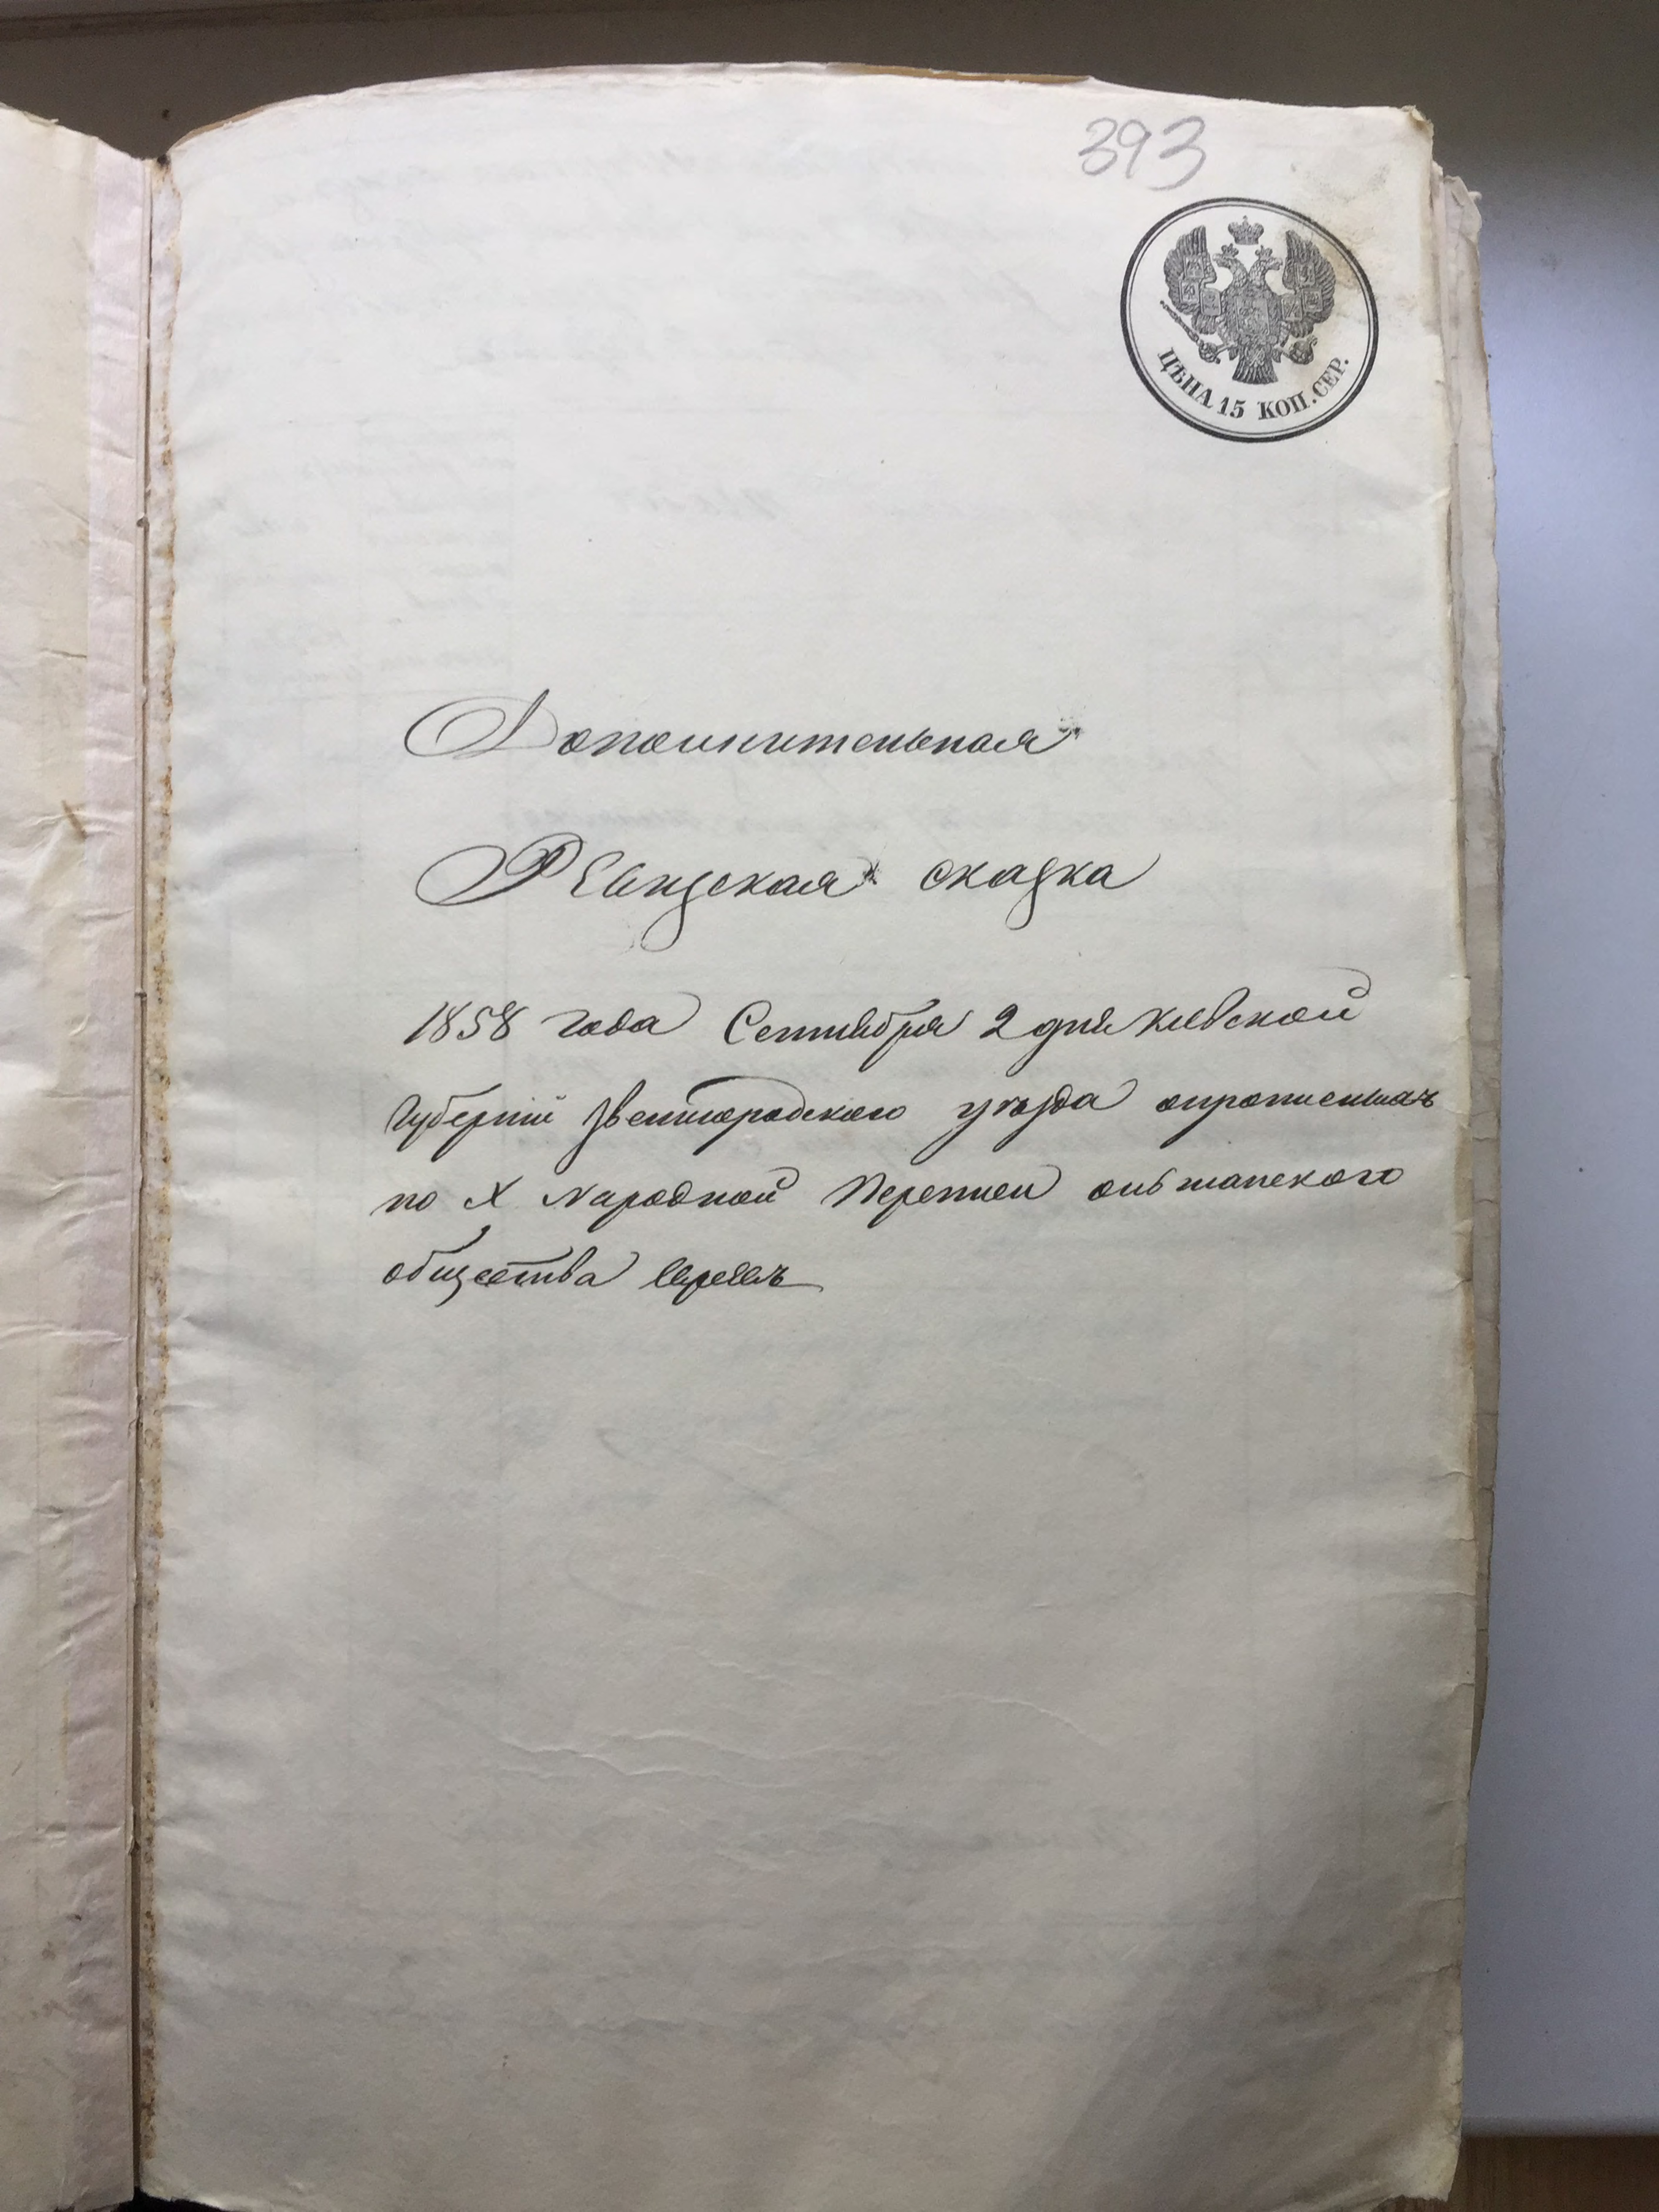 393
ЦѢНА 15 КОП. СЕР.
Дополнительная
Ревизская сказка
1858 года Сентября 2 дня Киевской
Губерніи Звенигородского уѣзда опрописныхъ
по X Народной Переписи ольшанского
общества Евреяхъ